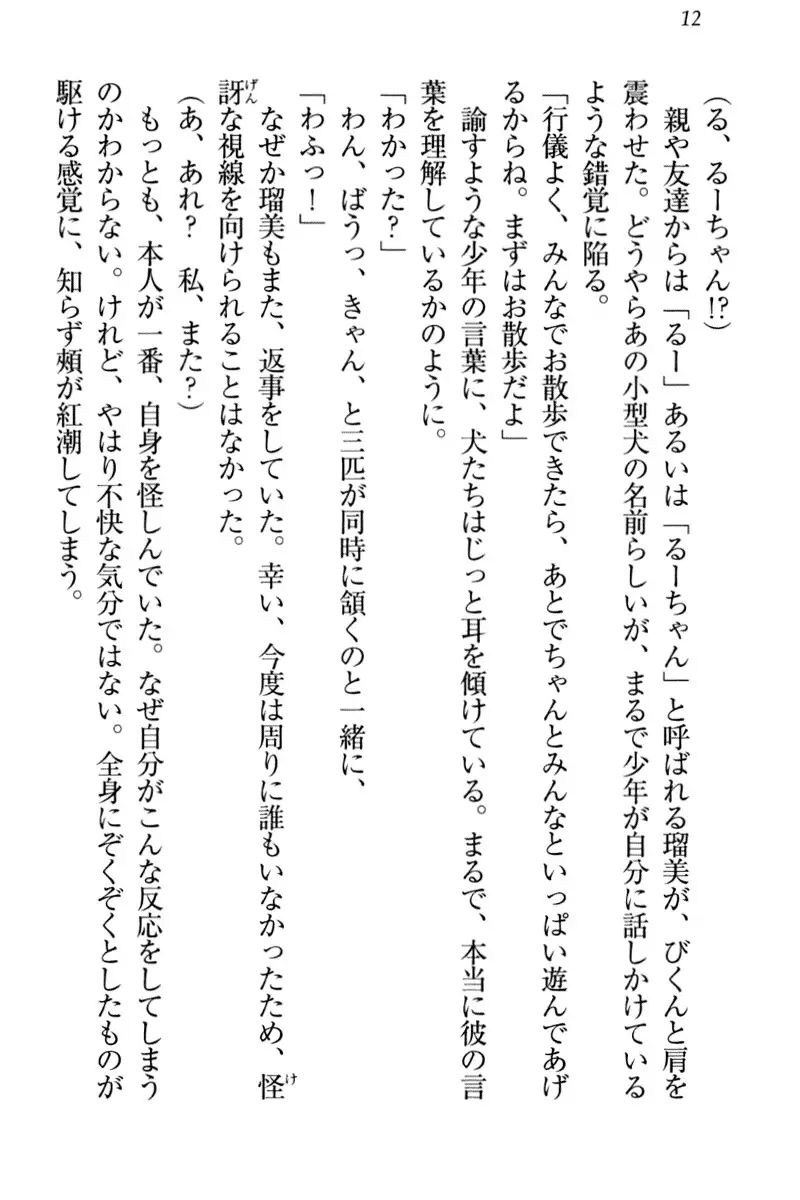 12
(る、るーちゃん!?)
　親や友達からは「るー」あるいは「るーちゃん」と呼ばれる瑠美が、びくんと肩を
震わせた。どうやらあの小型犬の名前らしいが、まるで少年が自分に話しかけている
ような錯覚に陥る。
「行儀よく、みんなでお散歩できたら、あとでちゃんとみんなといっぱい遊んであげ
るからね。まずはお散歩だよ」
　諭すような少年の言葉に、犬たちはじっと耳を傾けている。まるで、本当に彼の言
葉を理解しているかのように。
「わかった?」
　わん、ばうっ、きゃん、と三匹が同時に頷くのと一緒に、
「わふっ!」
　なぜか瑠美もまた、返事をしていた。幸い、今度は周りに誰もいなかったため、怪
訝な視線を向けられることはなかった。
(あ、あれ?　私、また?)
　もっとも、本人が一番、自身を怪しんでいた。なぜ自分がこんな反応をしてしまう
のかわからない。けれど、やはり不快な気分ではない。全身にぞくぞくとしたものが
駆ける感覚に、知らず頰が紅潮してしまう。